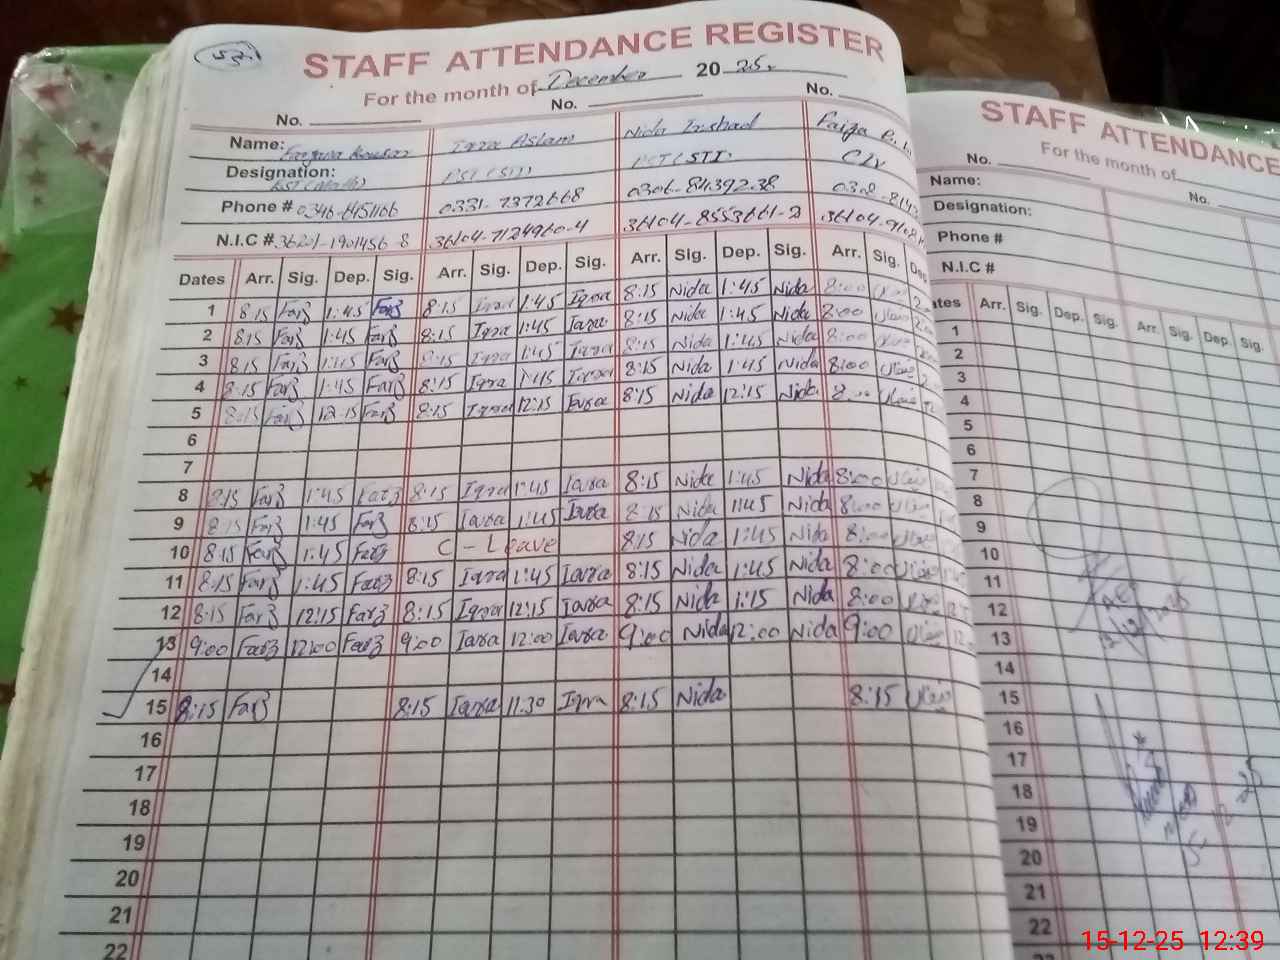 53
STAFF ATTENDANCE REGISTER
For the month of December 2025.
No. No. No.
Name: Farzana Kousar Iqra Aslam Nida Irshad Faiza
Designation: EST (Math) PST (STI) PCT (STI) CIV
Phone # 0346-8451166 0331-7372668 0306-8439238
N.I.C # 36201-1901456-8 36104-7124960-4 36104-8553661-2
Dates Arr. Sig. Dep. Sig. Arr. Sig. Dep. Sig. Arr. Sig. Dep. Sig. Arr. Sig.
1 8:15 Farz 1:45 Farz 8:15 Iqra 1:45 Iqra 8:15 Nida 1:45 Nida 8:00
2 8:15 Farz 1:45 Farz 8:15 Iqra 1:45 Iqra 8:15 Nida 1:45 Nida 8:00
3 8:15 Farz 1:45 Farz 8:15 Iqra 1:45 Iqra 8:15 Nida 1:45 Nida 8:00
4 8:15 Farz 1:45 Farz 8:15 Iqra 1:45 Iqra 8:15 Nida 1:45 Nida 8:00
5 8:15 Farz 12:15 Farz 8:15 Iqra 12:15 Iqra 8:15 Nida 12:15 Nida
6
7
8 8:15 Farz 1:45 Farz 8:15 Iqra 1:45 Iqra 8:15 Nida 1:45 Nida 8:00
9 8:15 Farz 1:45 Farz 8:15 Iqra 1:45 Iqra 8:15 Nida 1:45 Nida 8:00
10 8:15 Farz 1:45 Farz C - Leave 8:15 Nida 1:45 Nida 8:00
11 8:15 Farz 1:45 Farz 8:15 Iqra 1:45 Iqra 8:15 Nida 1:45 Nida 8:00
12 8:15 Farz 12:15 Farz 8:15 Iqra 12:15 Iqra 8:15 Nida 1:15 Nida 8:00
13 9:00 Farz 12:00 Farz 9:00 Iqra 12:00 Iqra 9:00 Nida 12:00 Nida 9:00
14
15 8:15 Farz 8:15 Iqra 11:30 Iqra 8:15 Nida 8:15
16
17
18
19
20
21
22
STAFF ATTENDANCE
For the month of
No. No.
Name:
Designation:
Phone #
N.I.C #
Arr. Sig. Dep. Sig. Arr. Sig. Dep. Sig.
1
2
3
4
5
6
7
8
9
10
11
12
13
14
15
16
17
18
19
20
21
22
15-12-25 12:39